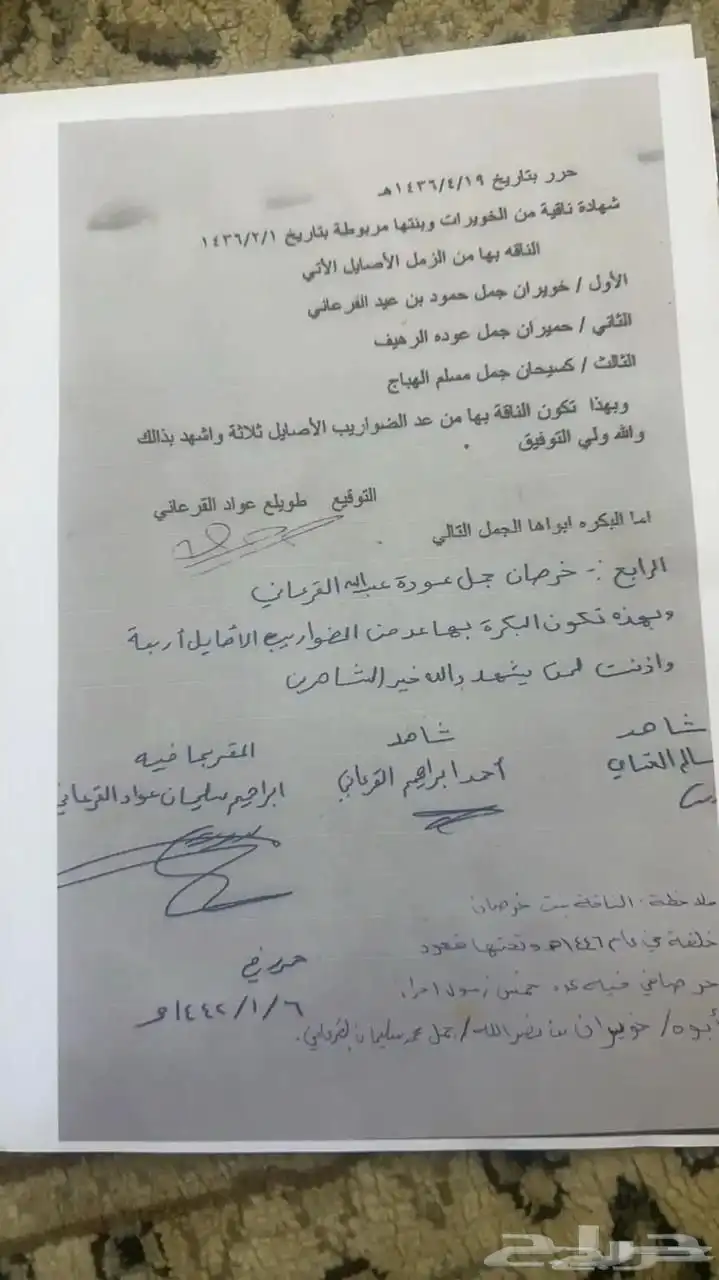 حرر بتاريخ ١٤٣٦/٤/١٩هـ
شهادة ناقية من الخويرات وبنتها مربوطة بتاريخ ١٤٣٦/٢/١
الناقه بها من الزمل الأصايل الأتي
الأول / خويران جمل حمود بن عيد القرعاني
الثاني / حميران جمل عوده الرهيف
الثالث / كسيحان جمل مسلم الهباج
وبهذا تكون الناقة بها من عد الضواريب الأصايل ثلاثة واشهد بذالك
والله ولي التوفيق
التوقيع طويلع عواد القرعاني
اما البكره ابواها الجمل التالي
الرابع :- خرصان جمل عودة عبدالله القرعاني
وبهذه تكون البكرة بها عدد من الضواريب الأصايل أربعة
واذنت لمن يشهد والله خير الشاهدين
شاهد
سالم
شاهد
أحمد ابراهيم القرعاني
المقر بما فيه
ابراهيم سليمان عواد القرعاني
ملاحظة: الناقة بنت خرصان
خلفة في عام ١٤٤٦هـ وتحتها قعود
فيه عدد خمس زمول
أبوه/ خويران بن نصر الله/ جمل محمد سليمان القرعاني.
حرر في
١٤٤٢/١/٦هـ
حراج